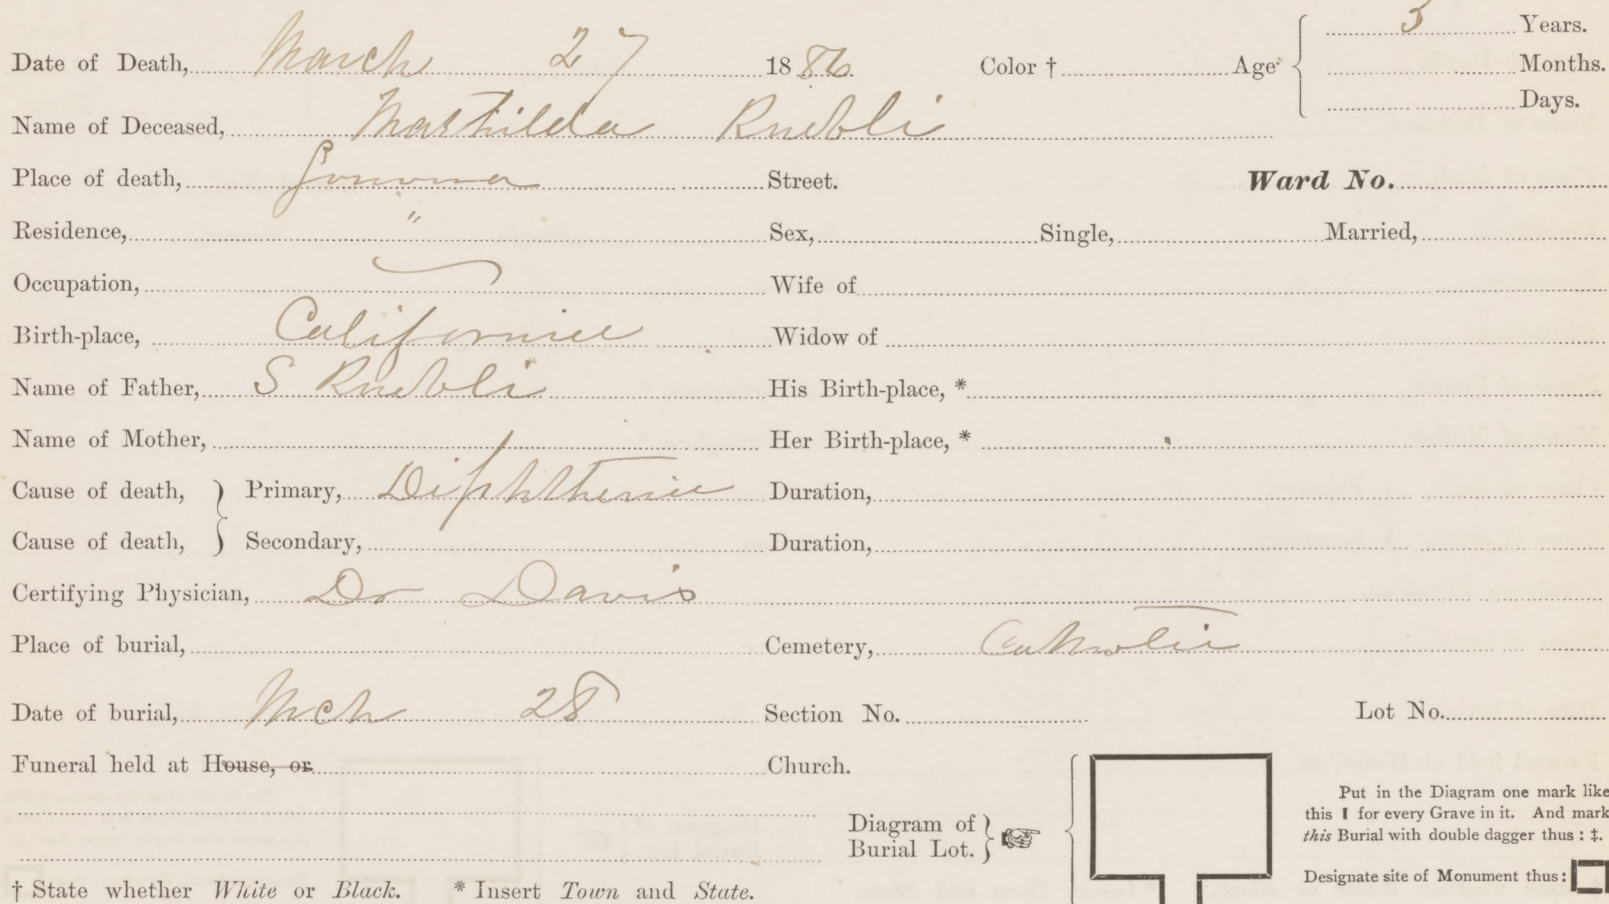 Date of Death, March 27 1886 Color † Age 3 Years.
Months.
Days.
Name of Deceased, Mathilda Ruebli
Place of death, Sonoma Street. Ward No.
Residence, " Sex, Single, Married,
Occupation, Wife of
Birth-place, California Widow of
Name of Father, S Ruebli His Birth-place, *
Name of Mother, Her Birth-place, *
Cause of death, } Primary, Diphtheria Duration,
Cause of death, } Secondary, Duration,
Certifying Physician, Dr Davis
Place of burial, Cemetery, Catholic
Date of burial, Mch 28 Section No. Lot No.
Funeral held at House, or Church.
Diagram of
Burial Lot.
Put in the Diagram one mark like
this I for every Grave in it. And mark
this Burial with double dagger thus : ‡.
Designate site of Monument thus :
† State whether White or Black. * Insert Town and State.